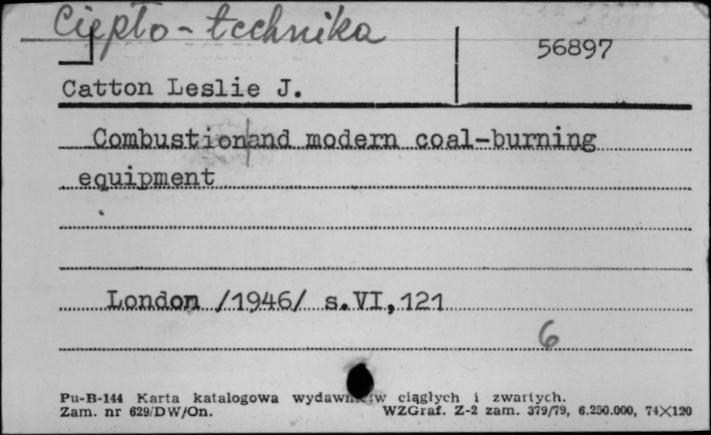 Ciepło-technika
56897
Catton Leslie J.
Combustion and modern coal-burning
equipment
London /1946/ s.VI,121
6
Pu-B-144 Karta katalogowa ciągłych i zwartych.
Zam. nr 629/DW/On. WZGraf. Z-2 zam. 379/79, 6.250.000, 74×120